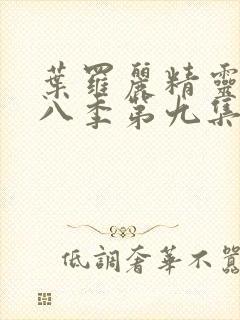 葉羅麗精靈
八季第九集
低調奢華不囂